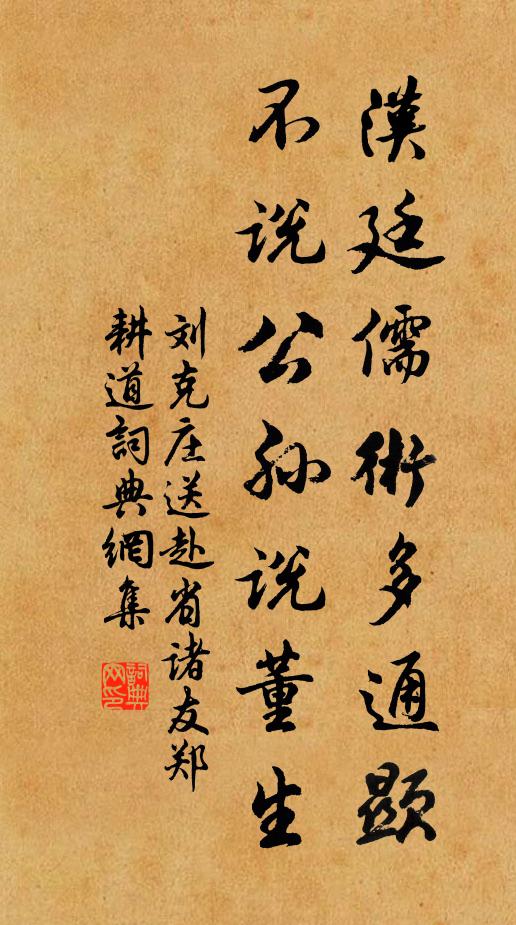 漢廷儒術多通顯
不说公孙说董生
刘克庄送赴省诸友郑
耕道詞典網集
詞典网印